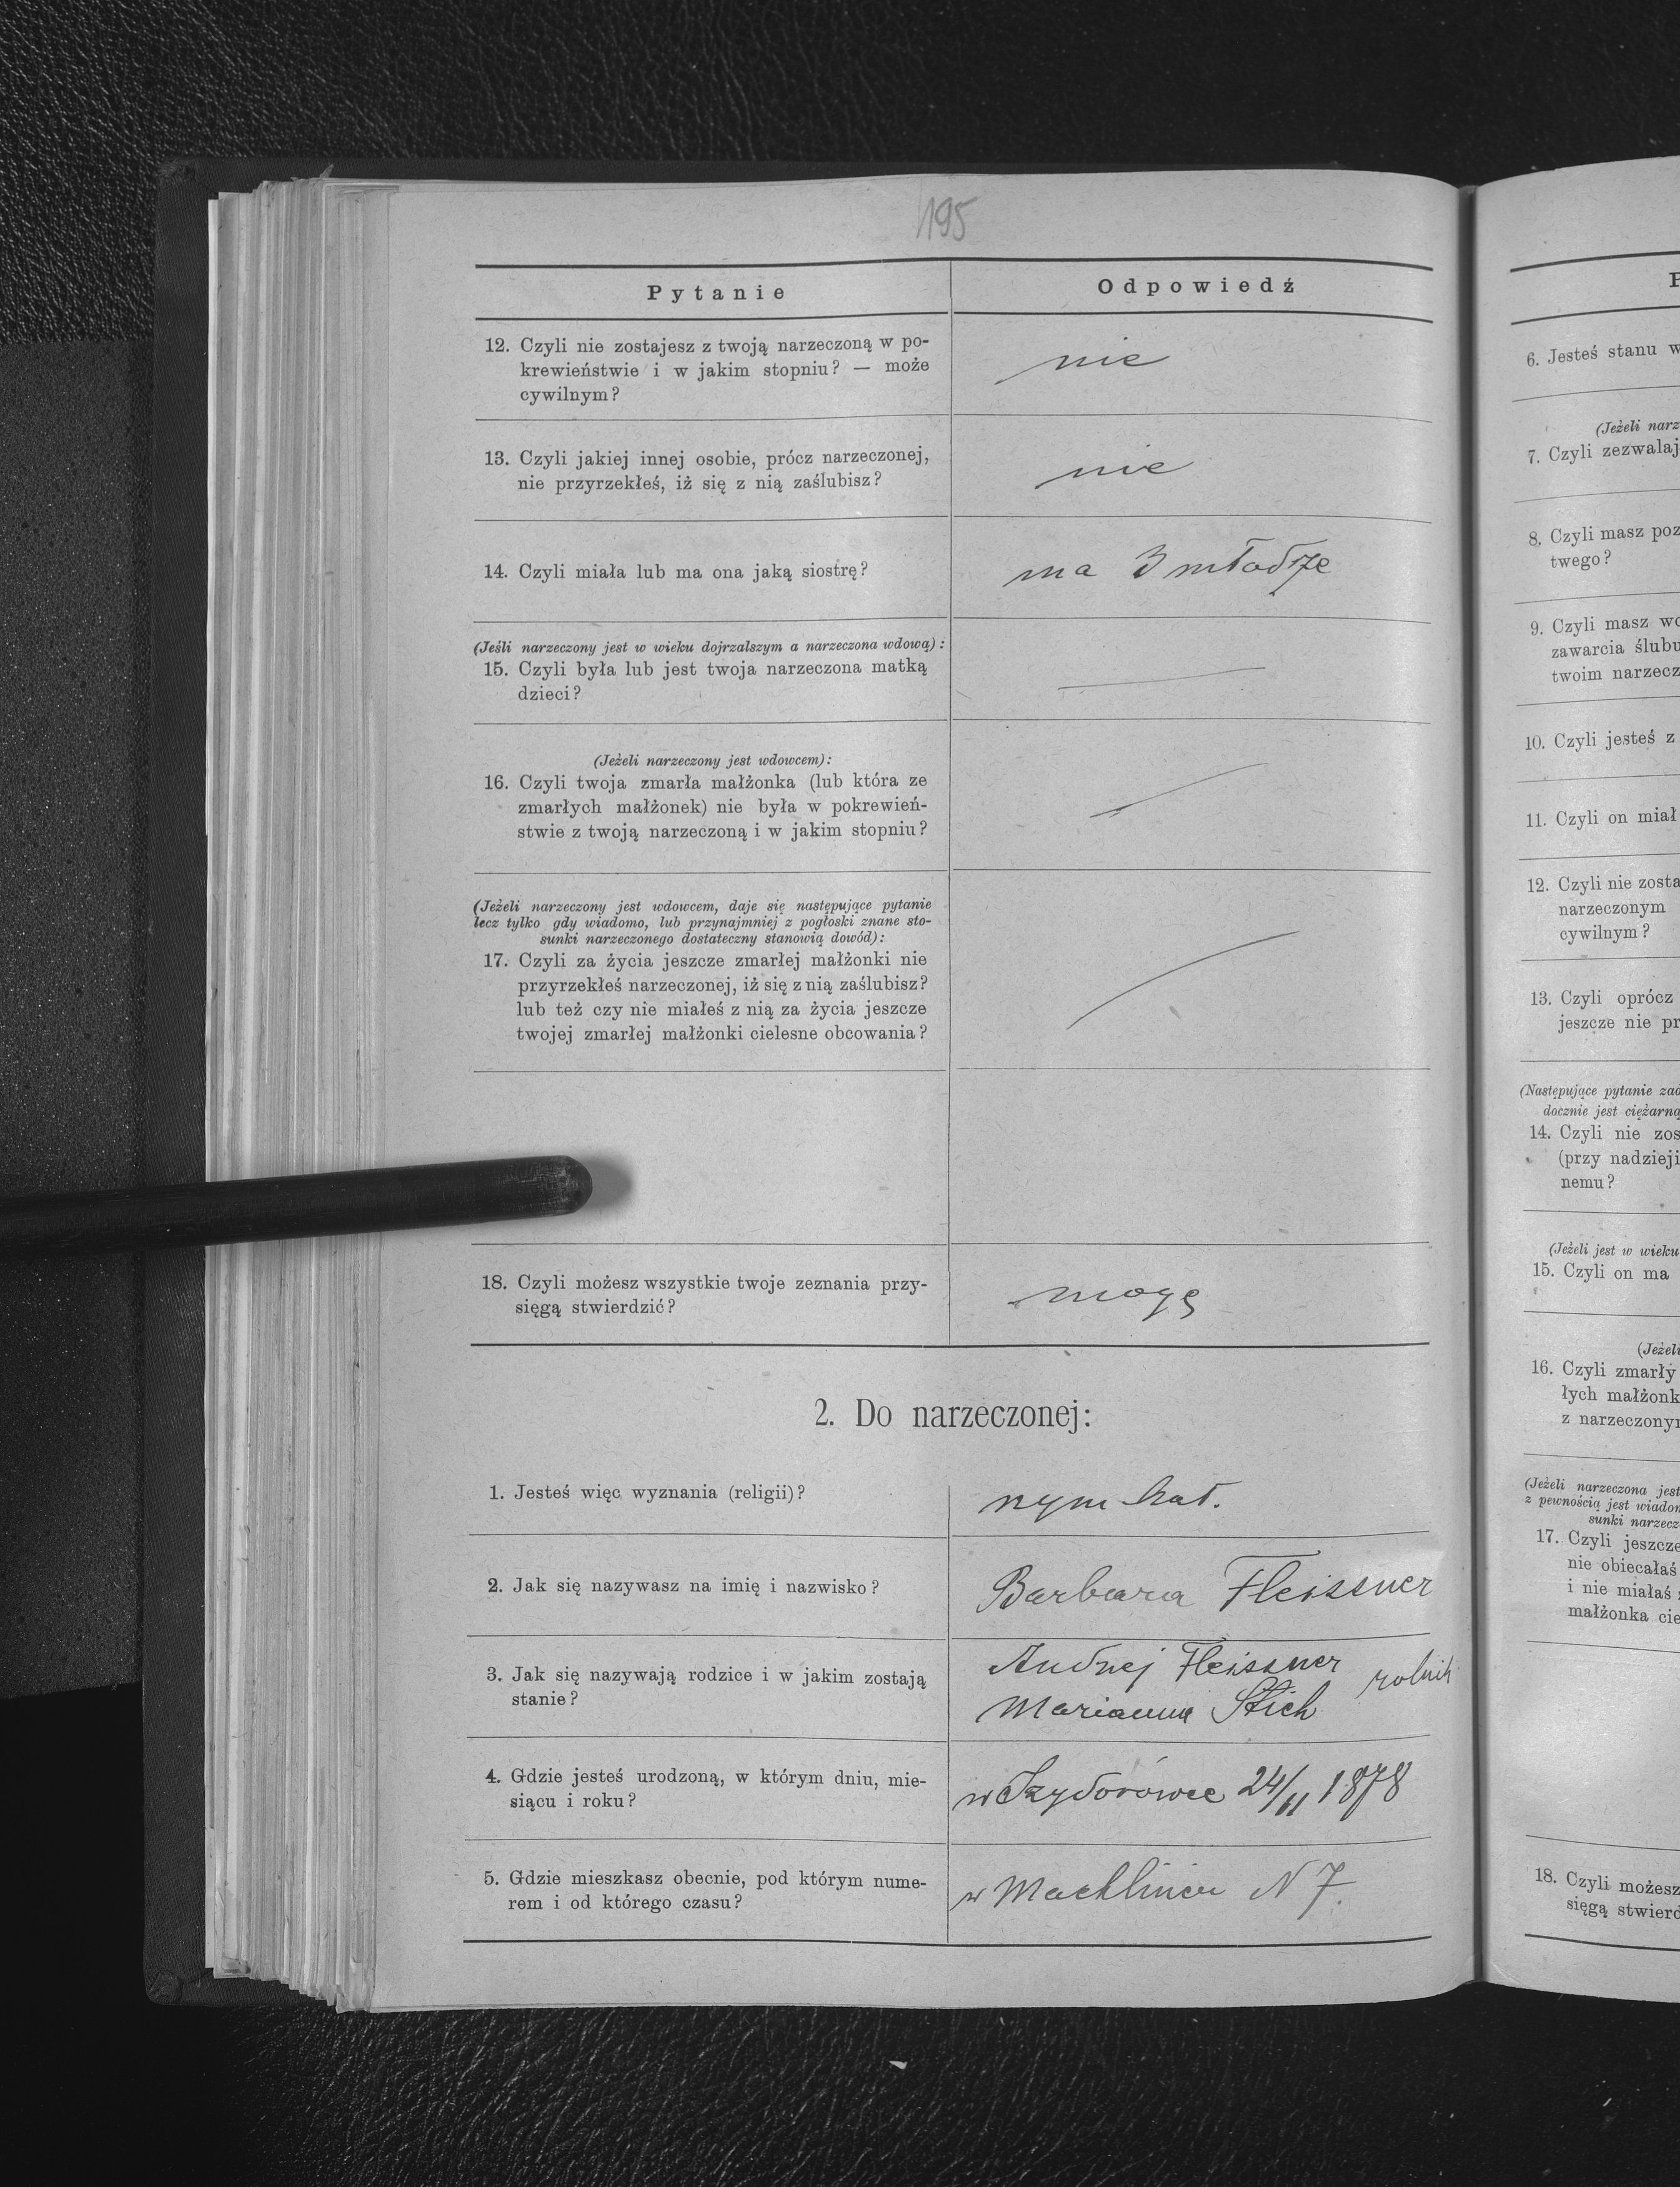 195
Pytanie
Odpowiedź
12. Czyli nie zostajesz z twoją narzeczoną w po-
krewieństwie i w jakim stopniu? — może
cywilnym?
nie
13. Czyli jakiej innej osobie, prócz narzeczonej,
nie przyrzekłeś, iż się z nią zaślubisz?
nie
14. Czyli miała lub ma ona jaką siostrę?
ma 3 młodsze
(Jeśli narzeczony jest w wieku dojrzalszym a narzeczona wdową):
15. Czyli była lub jest twoja narzeczona matką
dzieci?
(Jeżeli narzeczony jest wdowcem):
16. Czyli twoja zmarła małżonka (lub która ze
zmarłych małżonek) nie była w pokrewień-
stwie z twoją narzeczoną i w jakim stopniu?
(Jeżeli narzeczony jest wdowcem, daje się następujące pytanie
lecz tylko gdy wiadomo, lub przynajmniej z pogłoski znane sto-
sunki narzeczonego dostateczny stanowią dowód):
17. Czyli za życia jeszcze zmarłej małżonki nie
przyrzekłeś narzeczonej, iż się z nią zaślubisz?
lub też czy nie miałeś z nią za życia jeszcze
twojej zmarłej małżonki cielesne obcowania?
18. Czyli możesz wszystkie twoje zeznania przy-
sięgą stwierdzić?
mogę
2. Do narzeczonej:
1. Jesteś więc wyznania (religii)?
rzym kat.
2. Jak się nazywasz na imię i nazwisko?
Barbara Fleissner
3. Jak się nazywają rodzice i w jakim zostają
stanie?
Andrzej Fleissner
Marianna Stich
rolnik
4. Gdzie jesteś urodzoną, w którym dniu, mie-
siącu i roku?
w Izydorówce 24/11 1878
5. Gdzie mieszkasz obecnie, pod którym nume-
rem i od którego czasu?
w Machliniec N 7.
6. Jesteś stanu w
(Jeżeli narz
7. Czyli zezwalaj
8. Czyli masz poz
twego?
9. Czyli masz wo
zawarcia ślubu
twoim narzecz
10. Czyli jesteś z
11. Czyli on miał
12. Czyli nie zosta
narzeczonym
cywilnym?
13. Czyli oprócz
jeszcze nie pr
(Następujące pytanie zad
docznie jest ciężarną
14. Czyli nie zos
(przy nadzieji
nemu?
(Jeżeli jest w wieku
15. Czyli on ma
(Jeżeli
16. Czyli zmarły
łych małżonk
z narzeczonym
(Jeżeli narzeczona jest
z pewnością jest wiadom
sunki narzecz
17. Czyli jeszcze
nie obiecałaś
i nie miałaś
małżonka cie
18. Czyli możesz
sięgą stwierd